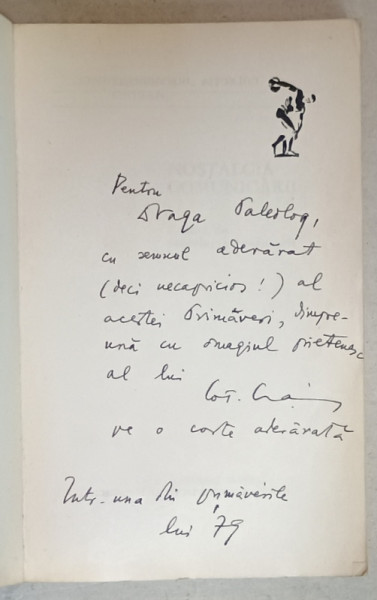 Pentru
Draga Paleolog,
cu semnul adevărat
(deci necapricios!) al
acestei Primăveri, dimpre-
ună cu omagiul prietenesc
al lui
pe o carte adevărată
Într-una din primăverile
lui '79